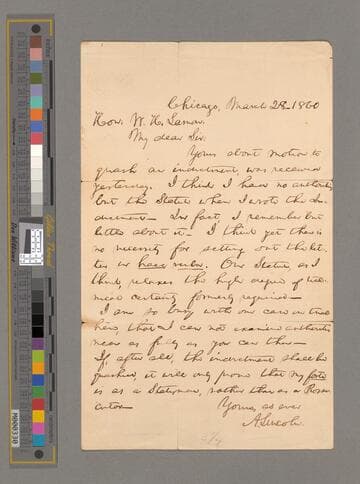 Chicago, March 28-1860
Hon. W. H. Lamon.
My dear Sir.
Yours about motion to
quash an indictment, was received
yesterday. I think I had no authority
but the Statute when I wrote the In-
dictment— In fact, I remember but
little about it— I think yet there is
no necessity for setting out the let-
ter in haec verba. Our Statute, as I
think, relaxes the high degree of tech-
nical certainty formerly required—
I am so busy with our case on trial
here, that I can not examine authorities
near as fully as you can there—
If, after all, the indictment shall be
quashed, it will only prove that my forte
is as a Statesman, rather than as a Prose-
cutor—
Yours, as ever
A. Lincoln
M000330